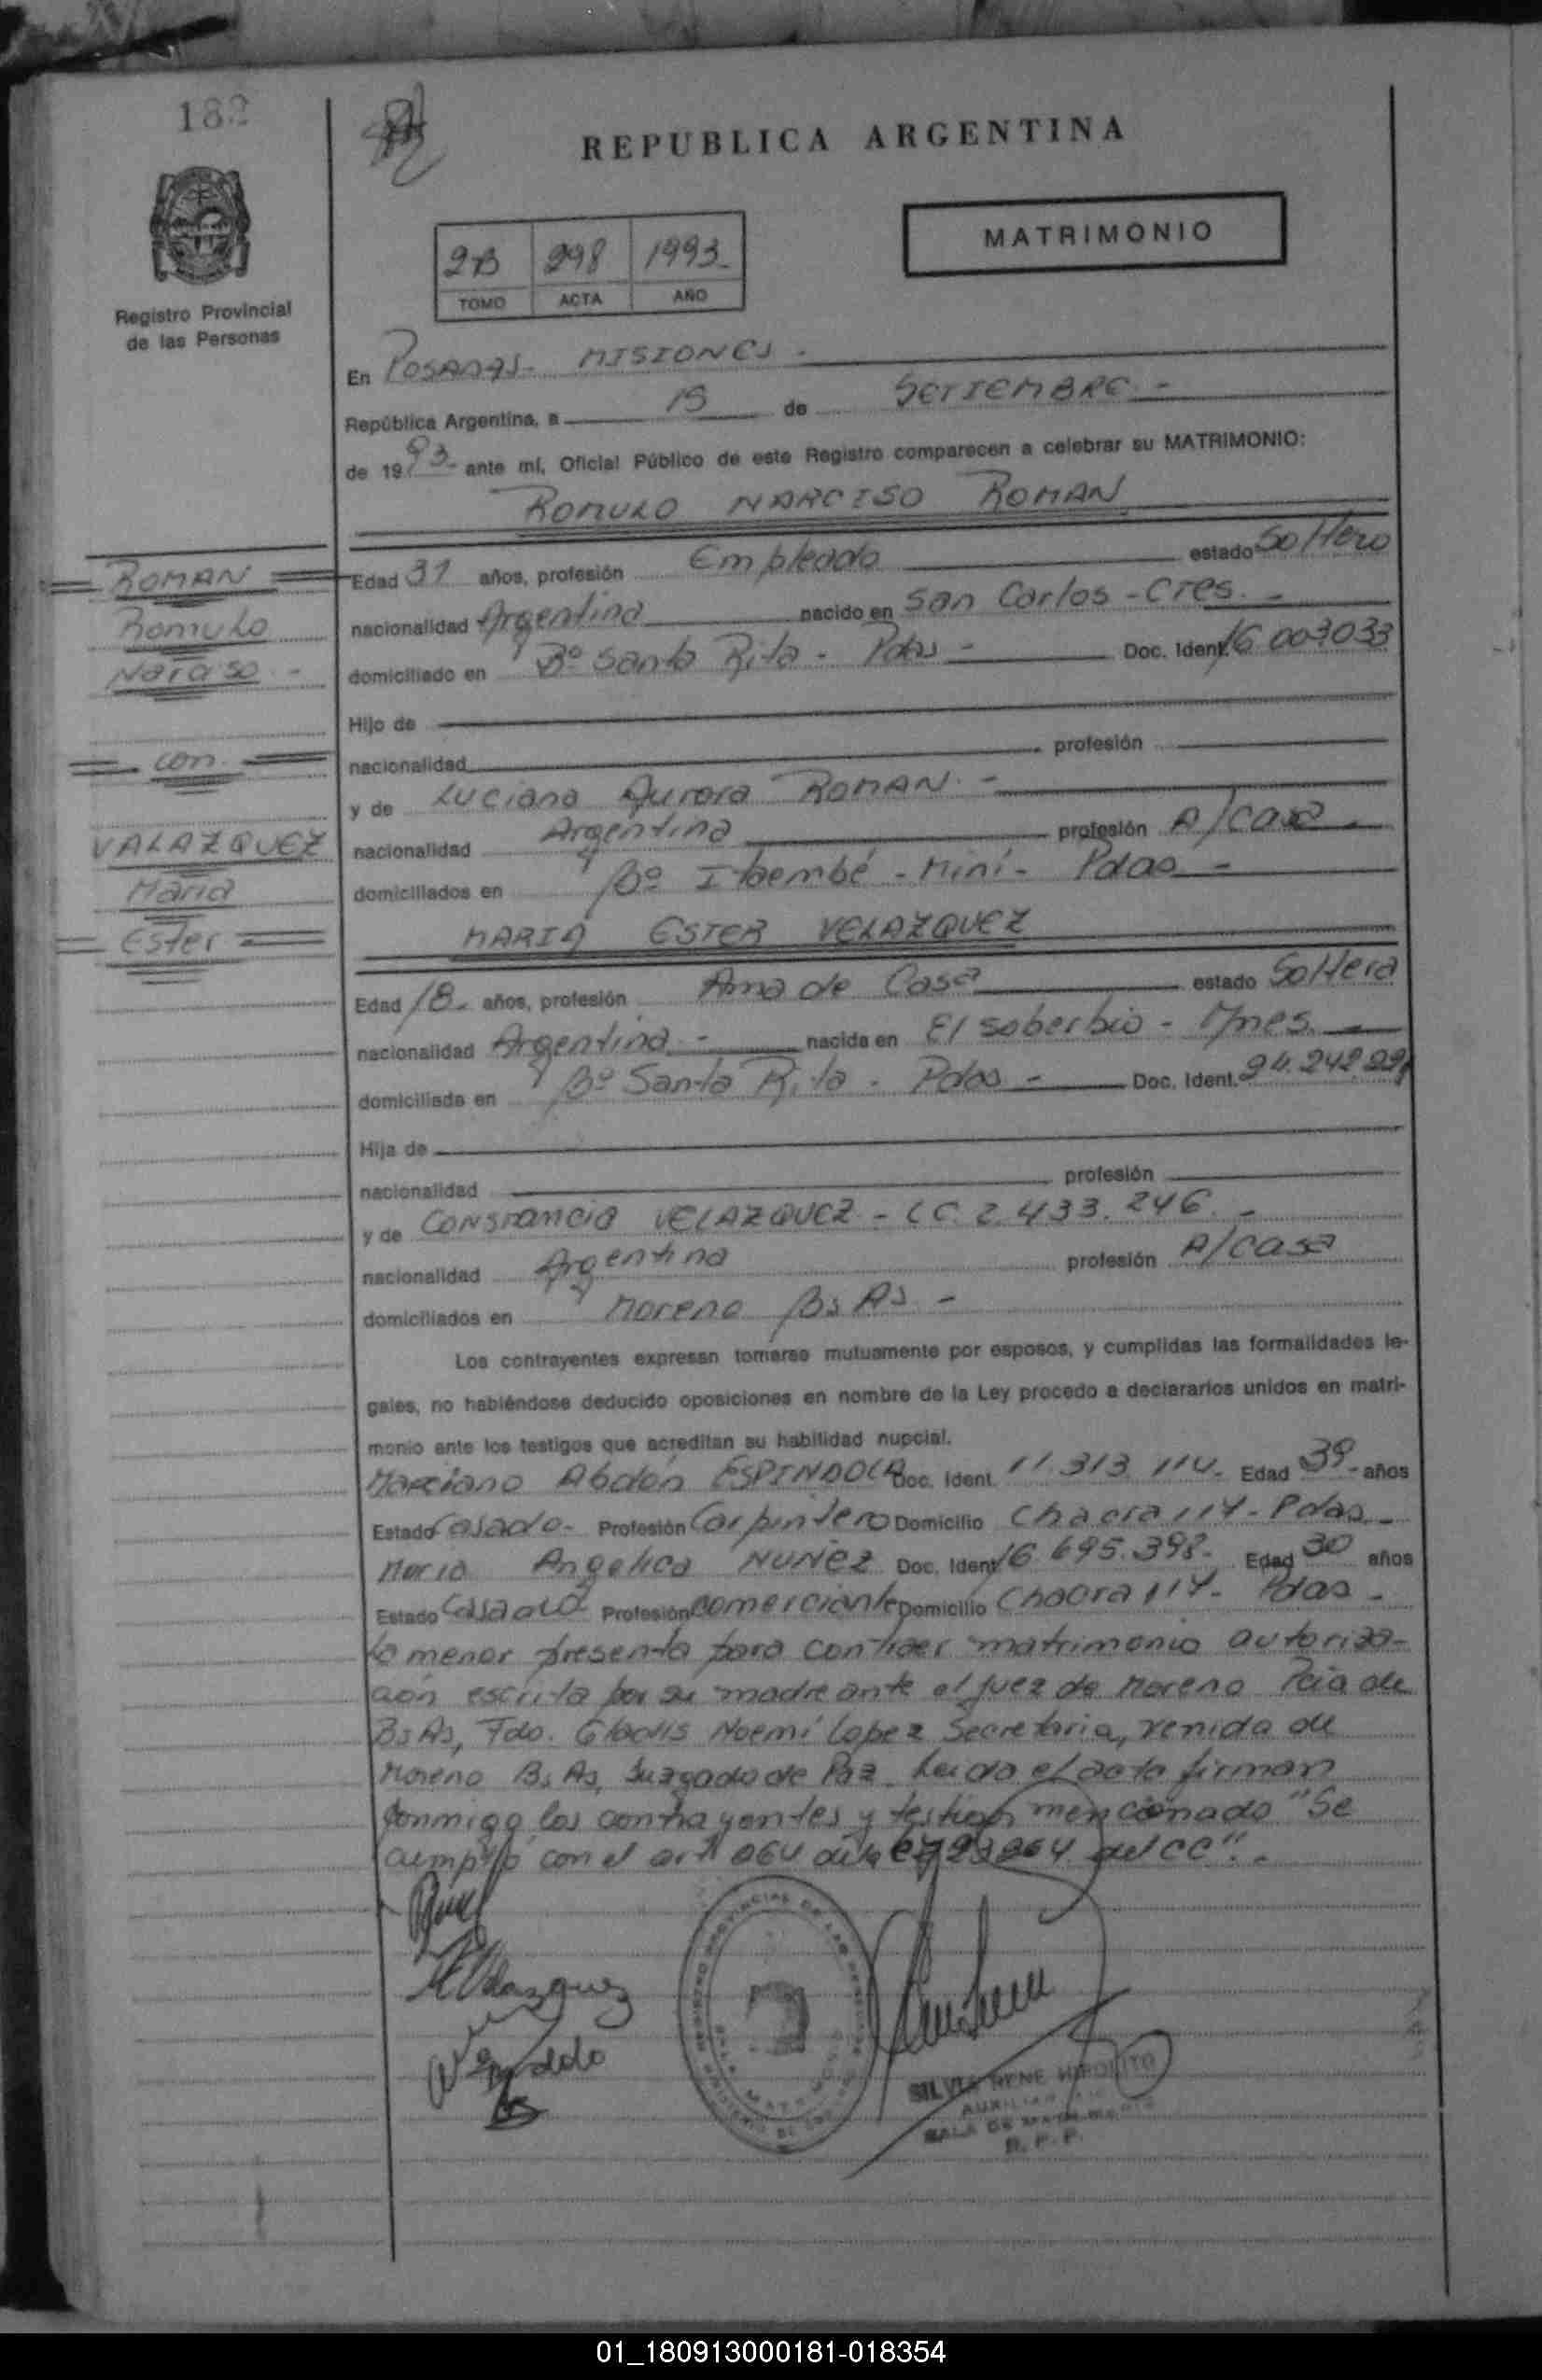 182
REPUBLICA ARGENTINA
MATRIMONIO
2B 298 1993
TOMO ACTA AÑO
Registro Provincial
de las Personas
En POSADAS - MISIONES -
República Argentina, a de SETIEMBRE -
de 1993 ante mí, Oficial Público de este Registro comparecen a celebrar su MATRIMONIO:
ROMULO NARCISO ROMAN
ROMAN
Romulo
Narciso -
con
VALAZQUEZ
Maria
Ester
Edad 31 años, profesión Empleado estado Soltero
nacionalidad Argentina nacido en San Carlos - Ctes. -
domiciliado en Bº Santa Rita - Pdas - Doc. Ident. 16.003033
Hijo de
nacionalidad profesión
y de Luciana Aurora ROMAN -
nacionalidad Argentina profesión A/casa -
domiciliados en Bº Itaembé - Mini - Pdas -
MARIA ESTER VELAZQUEZ
Edad 18 - años, profesión Ama de Casa estado Soltera
nacionalidad Argentina - nacida en El soberbio - Mnes. -
domiciliada en Bº Santa Rita - Pdas - Doc. Ident.
Hija de
nacionalidad profesión
y de Constancia VELAZQUEZ - LC. 2.433.246. -
nacionalidad Argentina profesión A/casa
domiciliados en Moreno Bs As -
Los contrayentes expresan tomarse mutuamente por esposos, y cumplidas las formalidades le-
gales, no habiéndose deducido oposiciones en nombre de la Ley procedo a declararlos unidos en matri-
monio ante los testigos que acreditan su habilidad nupcial.
Marciano Abdón ESPINDOLA Doc. Ident. 11.313.114. Edad 39 - años
Estado Casado - Profesión Carpintero Domicilio Chacra 114 - Pdas -
Maria Angelica NUÑEZ Doc. Ident. 16.695.398 - Edad 30 años
Estado Casada Profesión comerciante Domicilio Chacra 114 - Pdas -
La menor presenta para contraer matrimonio autoriza-
ción escrita por su madre ante el juez de Moreno Pcia de
Bs As, Fdo. Gladis Noemí Lopez Secretaria, venida de
Moreno Bs As, Juzgado de Paz. Leida el acta firman
conmigo los contrayentes y testigos mencionado "Se
cumplió con el art del CC". -
M Velazquez
SILVIA RENE HIPOLITO
AUXILIAR
SALA DE
R. P. P.
01_180913000181-018354